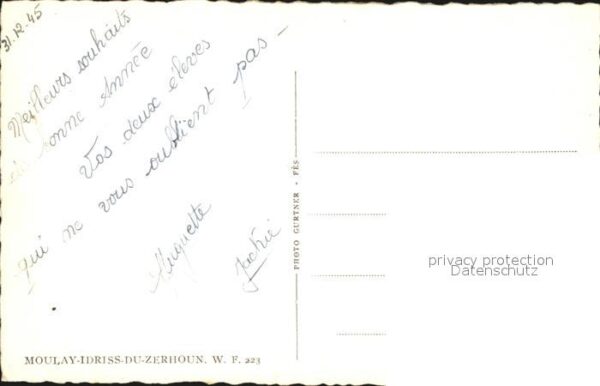 31.12.45
Meilleurs souhaits
de bonne Année
Vos deux élèves
qui ne vous oublient pas -
Huguette
Jackie
PHOTO GURTNER - FÈS
privacy protection
Datenschutz
MOULAY-IDRISS-DU-ZERHOUN. W. F. 223